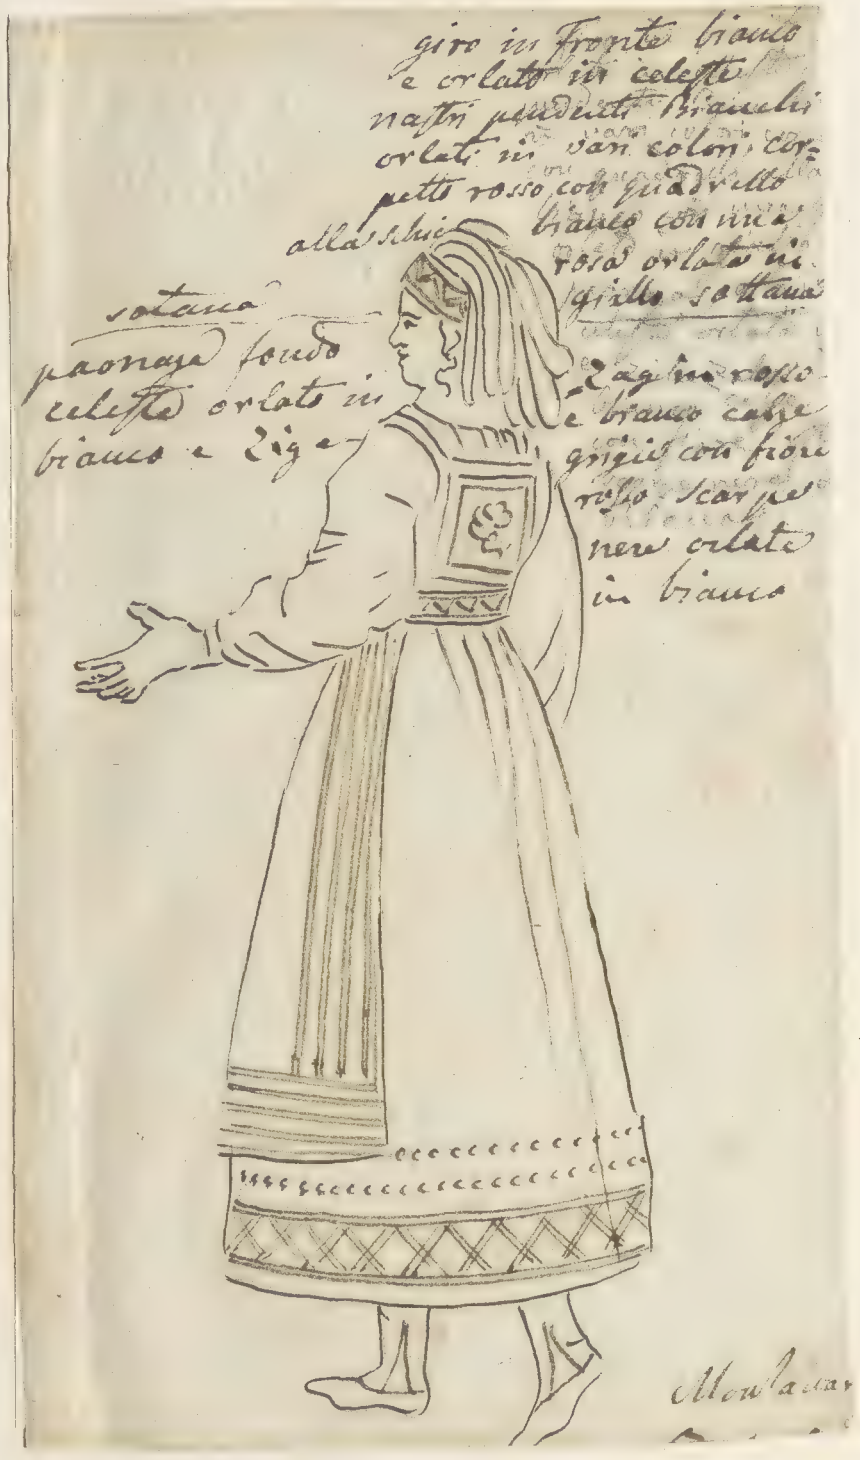 giro in fronte bianco
e orlato in celeste
nastri pendenti Bianchi
orlati in vari colori, cor=
petto rosso con quadrello
alla schie bianco con una
rosa orlata in
giallo sottana
sotana
paonaza fondo
celeste orlato in
bianco e Zig e
Zag in rosso
e bianco calze
grigie con fiore
rosso scarpe
nere orlate
in bianco